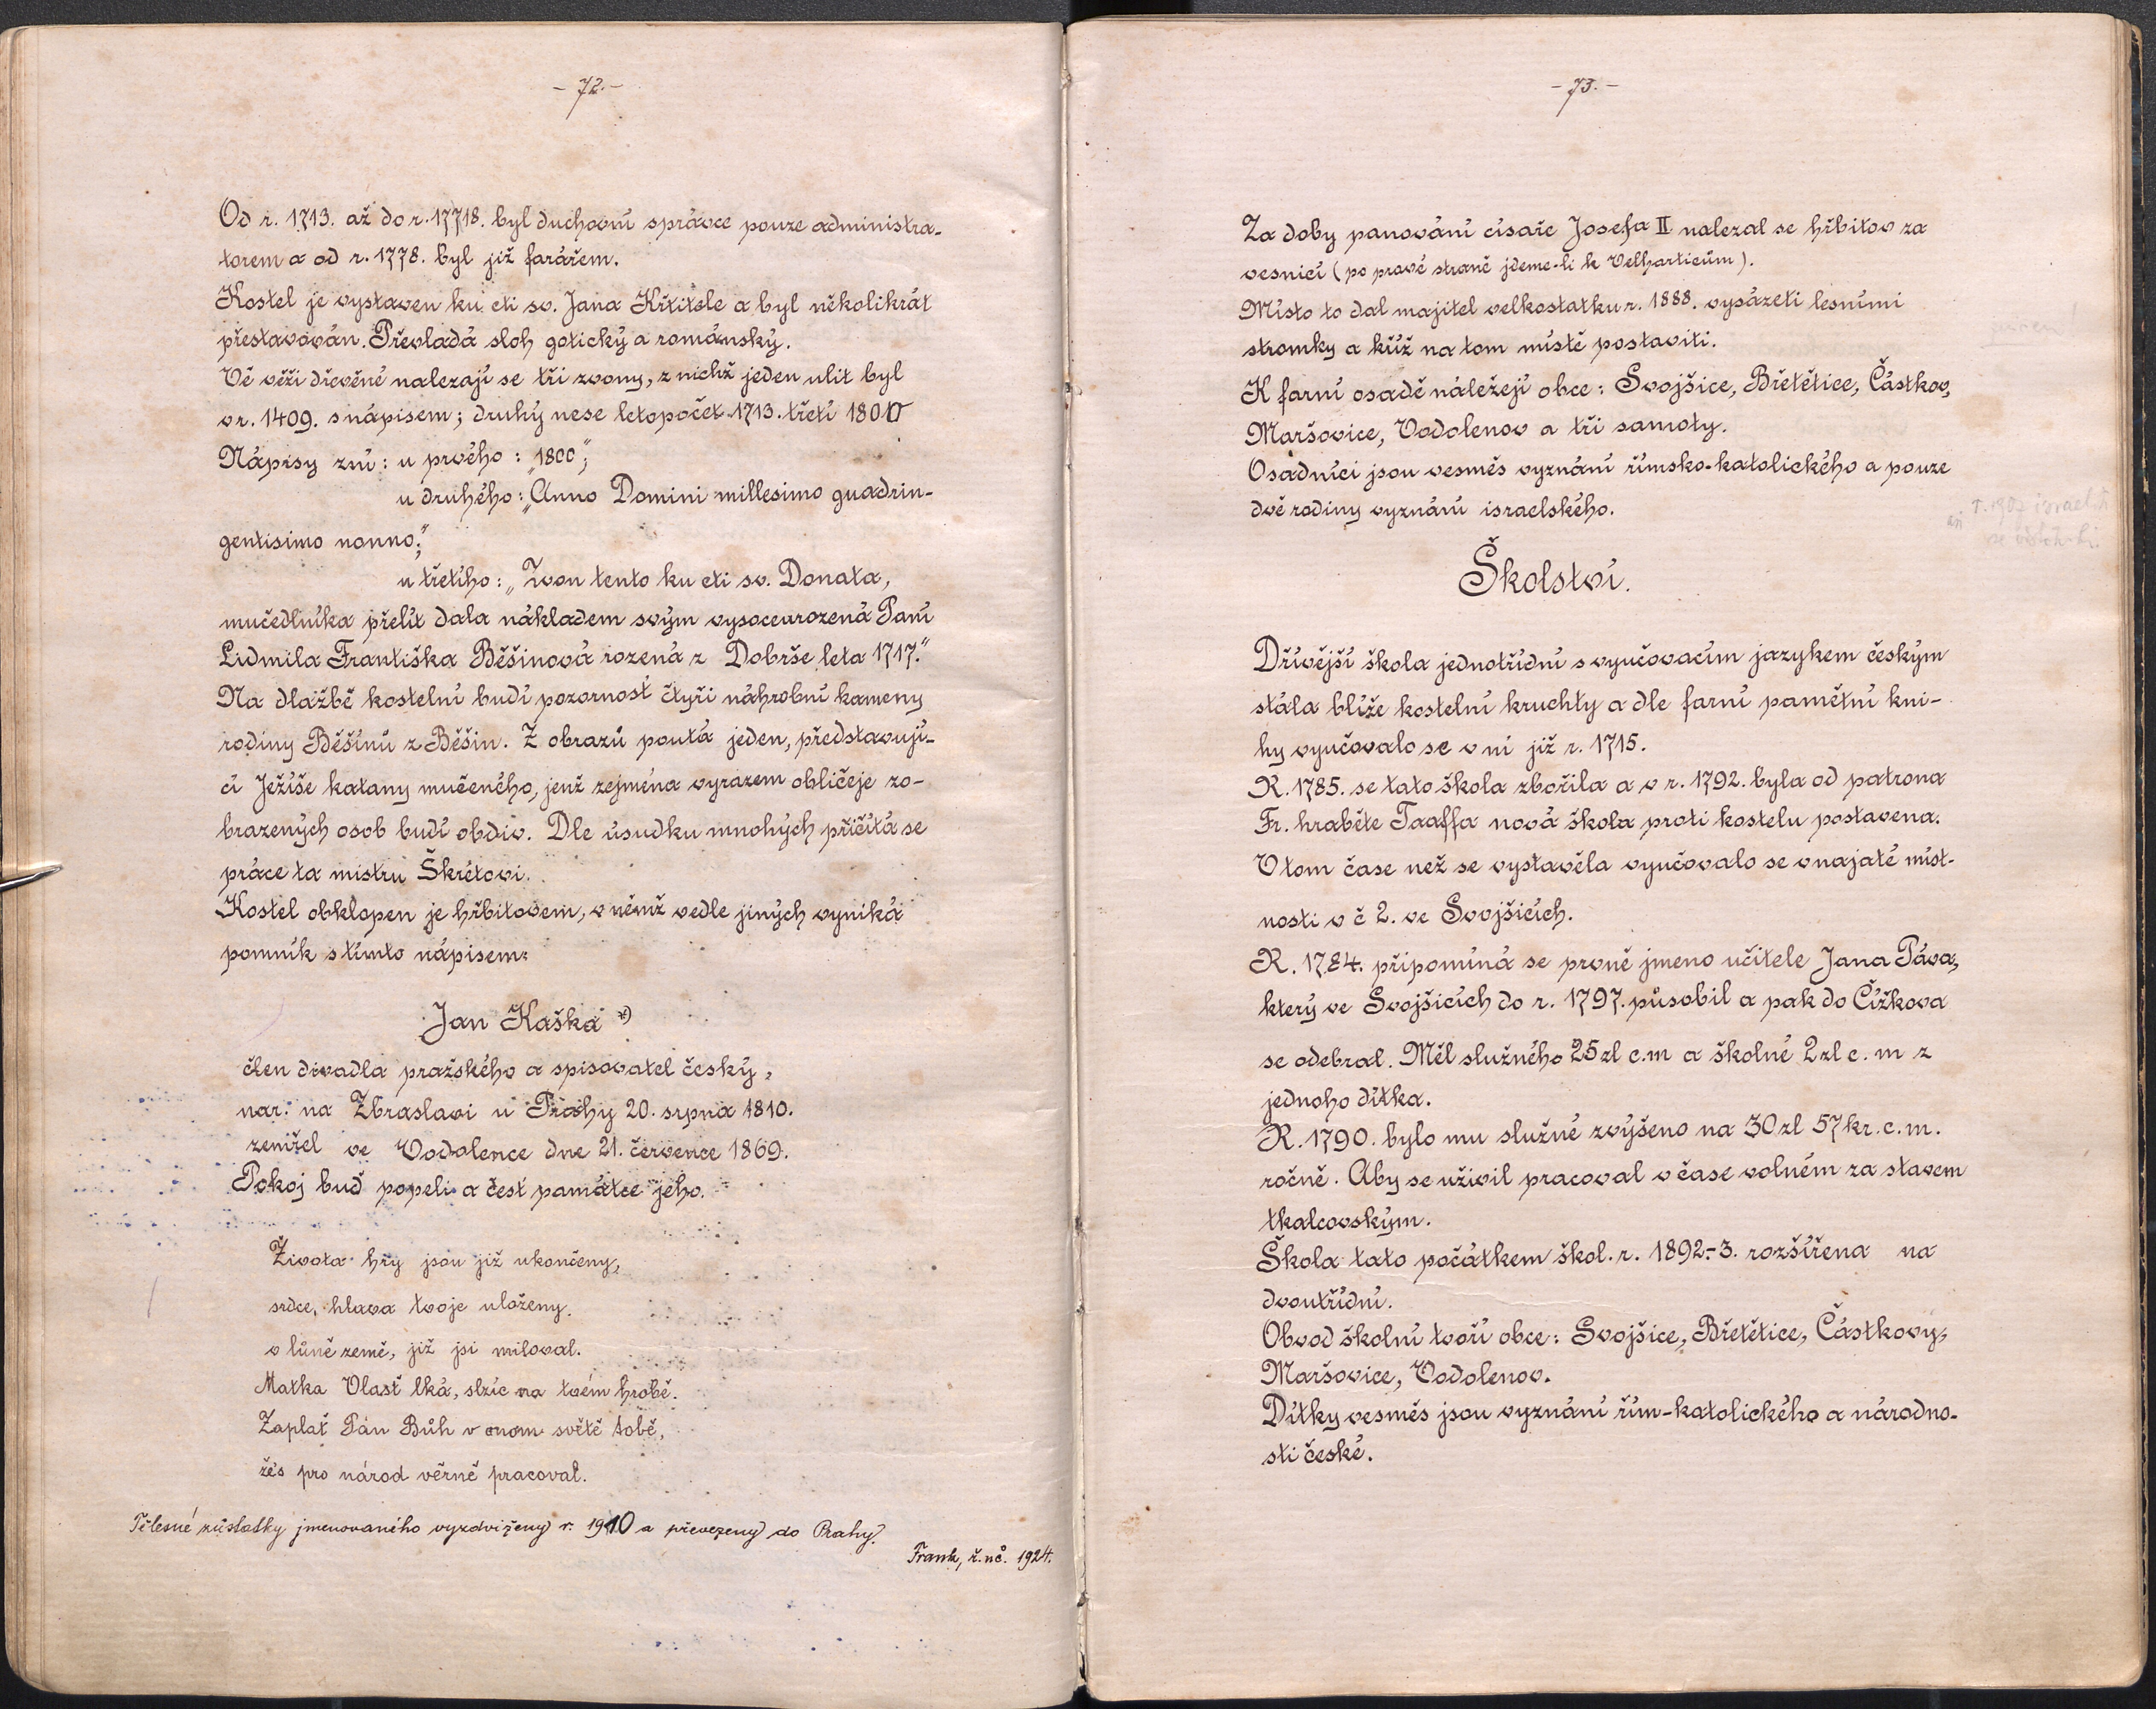 - 72. -
Od r. 1713. až do r. 17718. byl duchovní správce pouze administra-
torem a od r. 1778. byl již farářem.
Kostel je vystaven ku cti sv. Jana Křtitele a byl několikrát
přestavován. Převládá sloh gotický a románský.
Vě věži dřevěné nalezají se tři zvony, z nichž jeden ulit byl
v r. 1409. s nápisem; druhý nese letopočet 1713. třetí 1800
Nápisy zní: u prvého: „1800";
u druhého: „Anno Domini millesimo quadrin-
gentisimo nonno;"
u třetího: „Zvon tento ku cti sv. Donata,
mučedlníka přelít dala nákladem svým vysoceurozená Paní
Lidmila Františka Běšinová rozená z Dobrše leta 1717."
Na dlažbě kostelní budí pozornosť čtyři náhrobní kameny
rodiny Běšínů z Běšin. Z obrazů poutá jeden, představují-
cí Ježíše katany mučeného, jenž zejména výrazem obličeje zo-
brazených osob budí obdiv. Dle úsudku mnohých přičítá se
práce ta mistru Škrétovi.
Kostel obklopen je hřbitovem, v němž vedle jiných vyniká
pomník s tímto nápisem:
Jan Kaška *)
člen divadla pražského a spisovatel český,
nar. na Zbraslavi u Prahy 20. srpna 1810.
zemřel ve Vodolence dne 21. července 1869.
Pokoj buď popeli a čest památce jeho.
Života hry jsou již ukončeny,
srdce, hlava tvoje uloženy.
v lůně země, již jsi miloval.
Matka Vlasť lká, slzíc na tvém hrobě.
Zaplať Pán Bůh v onom světě tobě,
žes pro národ věrně pracoval.
Tělesné zůstatky jmenovaného vyzdviženy r. 1910 a převezeny do Prahy.
Frank, ř. uč. 1924.
- 73. -
Za doby panování císaře Josefa II nalezal se hřbitov za
vesnicí (po pravé straně jdeme-li k Velharticům).
Místo to dal majitel velkostatku r. 1888. vysázeti lesními
stromky a kříž na tom místě postaviti.
K farní osadě náležejí obce: Svojšice, Břetětice, Částkov,
Maršovice, Vodolenov a tři samoty.
Osadníci jsou vesměs vyznání římsko-katolického a pouze
dvě rodiny vyznání israelského.
r. 1907 israelité
Školství.
Dřívější škola jednotřídní s vyučovacím jazykem českým
stála blíže kostelní kruchty a dle farní pamětní kni-
hy vyučovalo se v ní již r. 1715.
R. 1785. se tato škola zbořila a v r. 1792. byla od patrona
Fr. hraběte Taaffa nová škola proti kostelu postavena.
V tom čase než se vystavěla vyučovalo se v najaté míst-
nosti v č 2. ve Svojšicích.
R. 1784. připomíná se prvně jmeno učitele Jana Páva,
který ve Svojšicích do r. 1797. působil a pak do Čížkova
se odebral. Měl služného 25 zl c.m a školné 2 zl c. m z
jednoho dítka.
R. 1790. bylo mu služné zvýšeno na 30 zl 57 kr. c. m.
ročně. Aby se uživil pracoval v čase volném za stavem
tkalcovským.
Škola tato počátkem škol. r. 1892-3. rozšířena na
dvoutřídní.
Obvod školní tvoří obce: Svojšice, Břetětice, Částkovy,
Maršovice, Vodolenov.
Dítky vesměs jsou vyznání řím-katolického a národno-
sti české.